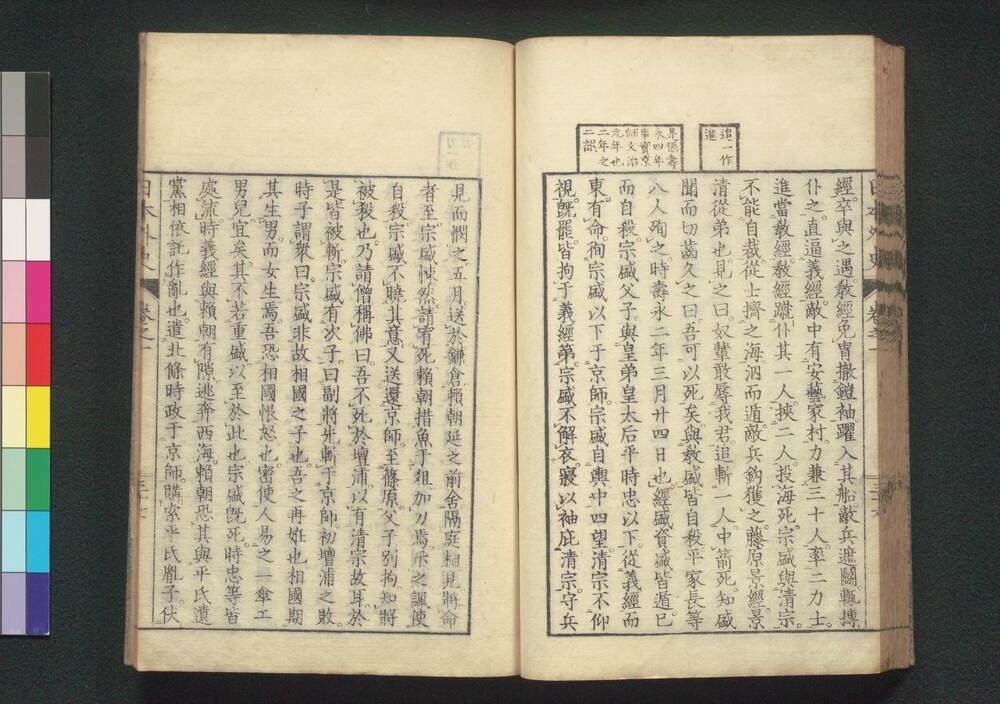 追一作
進
是係壽
永四年
事實京
師文治
元年也
二年之
二誤
日本外史 卷之一
經。卒與之遇。敎經免冑撤鎧袖躍入其船。敵兵遮鬪。輒摶
仆之。直逼義經。敵中有安藝家村。力兼三十人。率二力士。
進當敎經。敎經蹴仆其一人。挾二人投海死。宗盛與清宗。
不能自裁。從士擠之海。泅而遁。敵兵鈎獲之。藤原景經景
清從弟也。見之曰。奴輩敢辱我君。追斬一人。中箭死。知盛
聞而切齒。久之曰。吾可以死矣。與敎盛皆自殺。平家長等
八人殉之。時壽永二年三月廿四日也。經盛資盛皆遁。已
而自殺。宗盛父子。與皇弟皇太后平時忠以下。從義經而
東。有命。徇宗盛以下于京師。宗盛自輿中四望。清宗不仰
視。旣罷。皆拘于義經第。宗盛不解衣。寢以袖庇清宗。守兵
見而憫之。五月。送於鎌倉。賴朝延之前舍。隔庭相見。將命
者至。宗盛悚然請宥死。賴朝措魚于俎。加刀焉。示之諷使
自殺。宗盛不曉其意。又送還京師。至篠原。父子別拘。知將
被殺也。乃請僧稱佛曰。吾不死於壇浦。以有清宗故耳。於
是皆被斬。宗盛有次子。曰副將。先斬于京師。初壇浦之敗。
時子謂衆曰。宗盛非故相國之子也。吾之再姙也。相國期
其生男。而女生焉。吾恐相國恨怒也。密使人易之一傘工
男兒。宜矣其不若重盛。以至於此也。宗盛旣死。時忠等皆
處流。時義經與賴朝有隙。逃奔西海。賴朝恐其與平氏遺
黨相依託作亂也。遣北條時政于京師。購索平氏胤子。伏
日本外史 卷之一